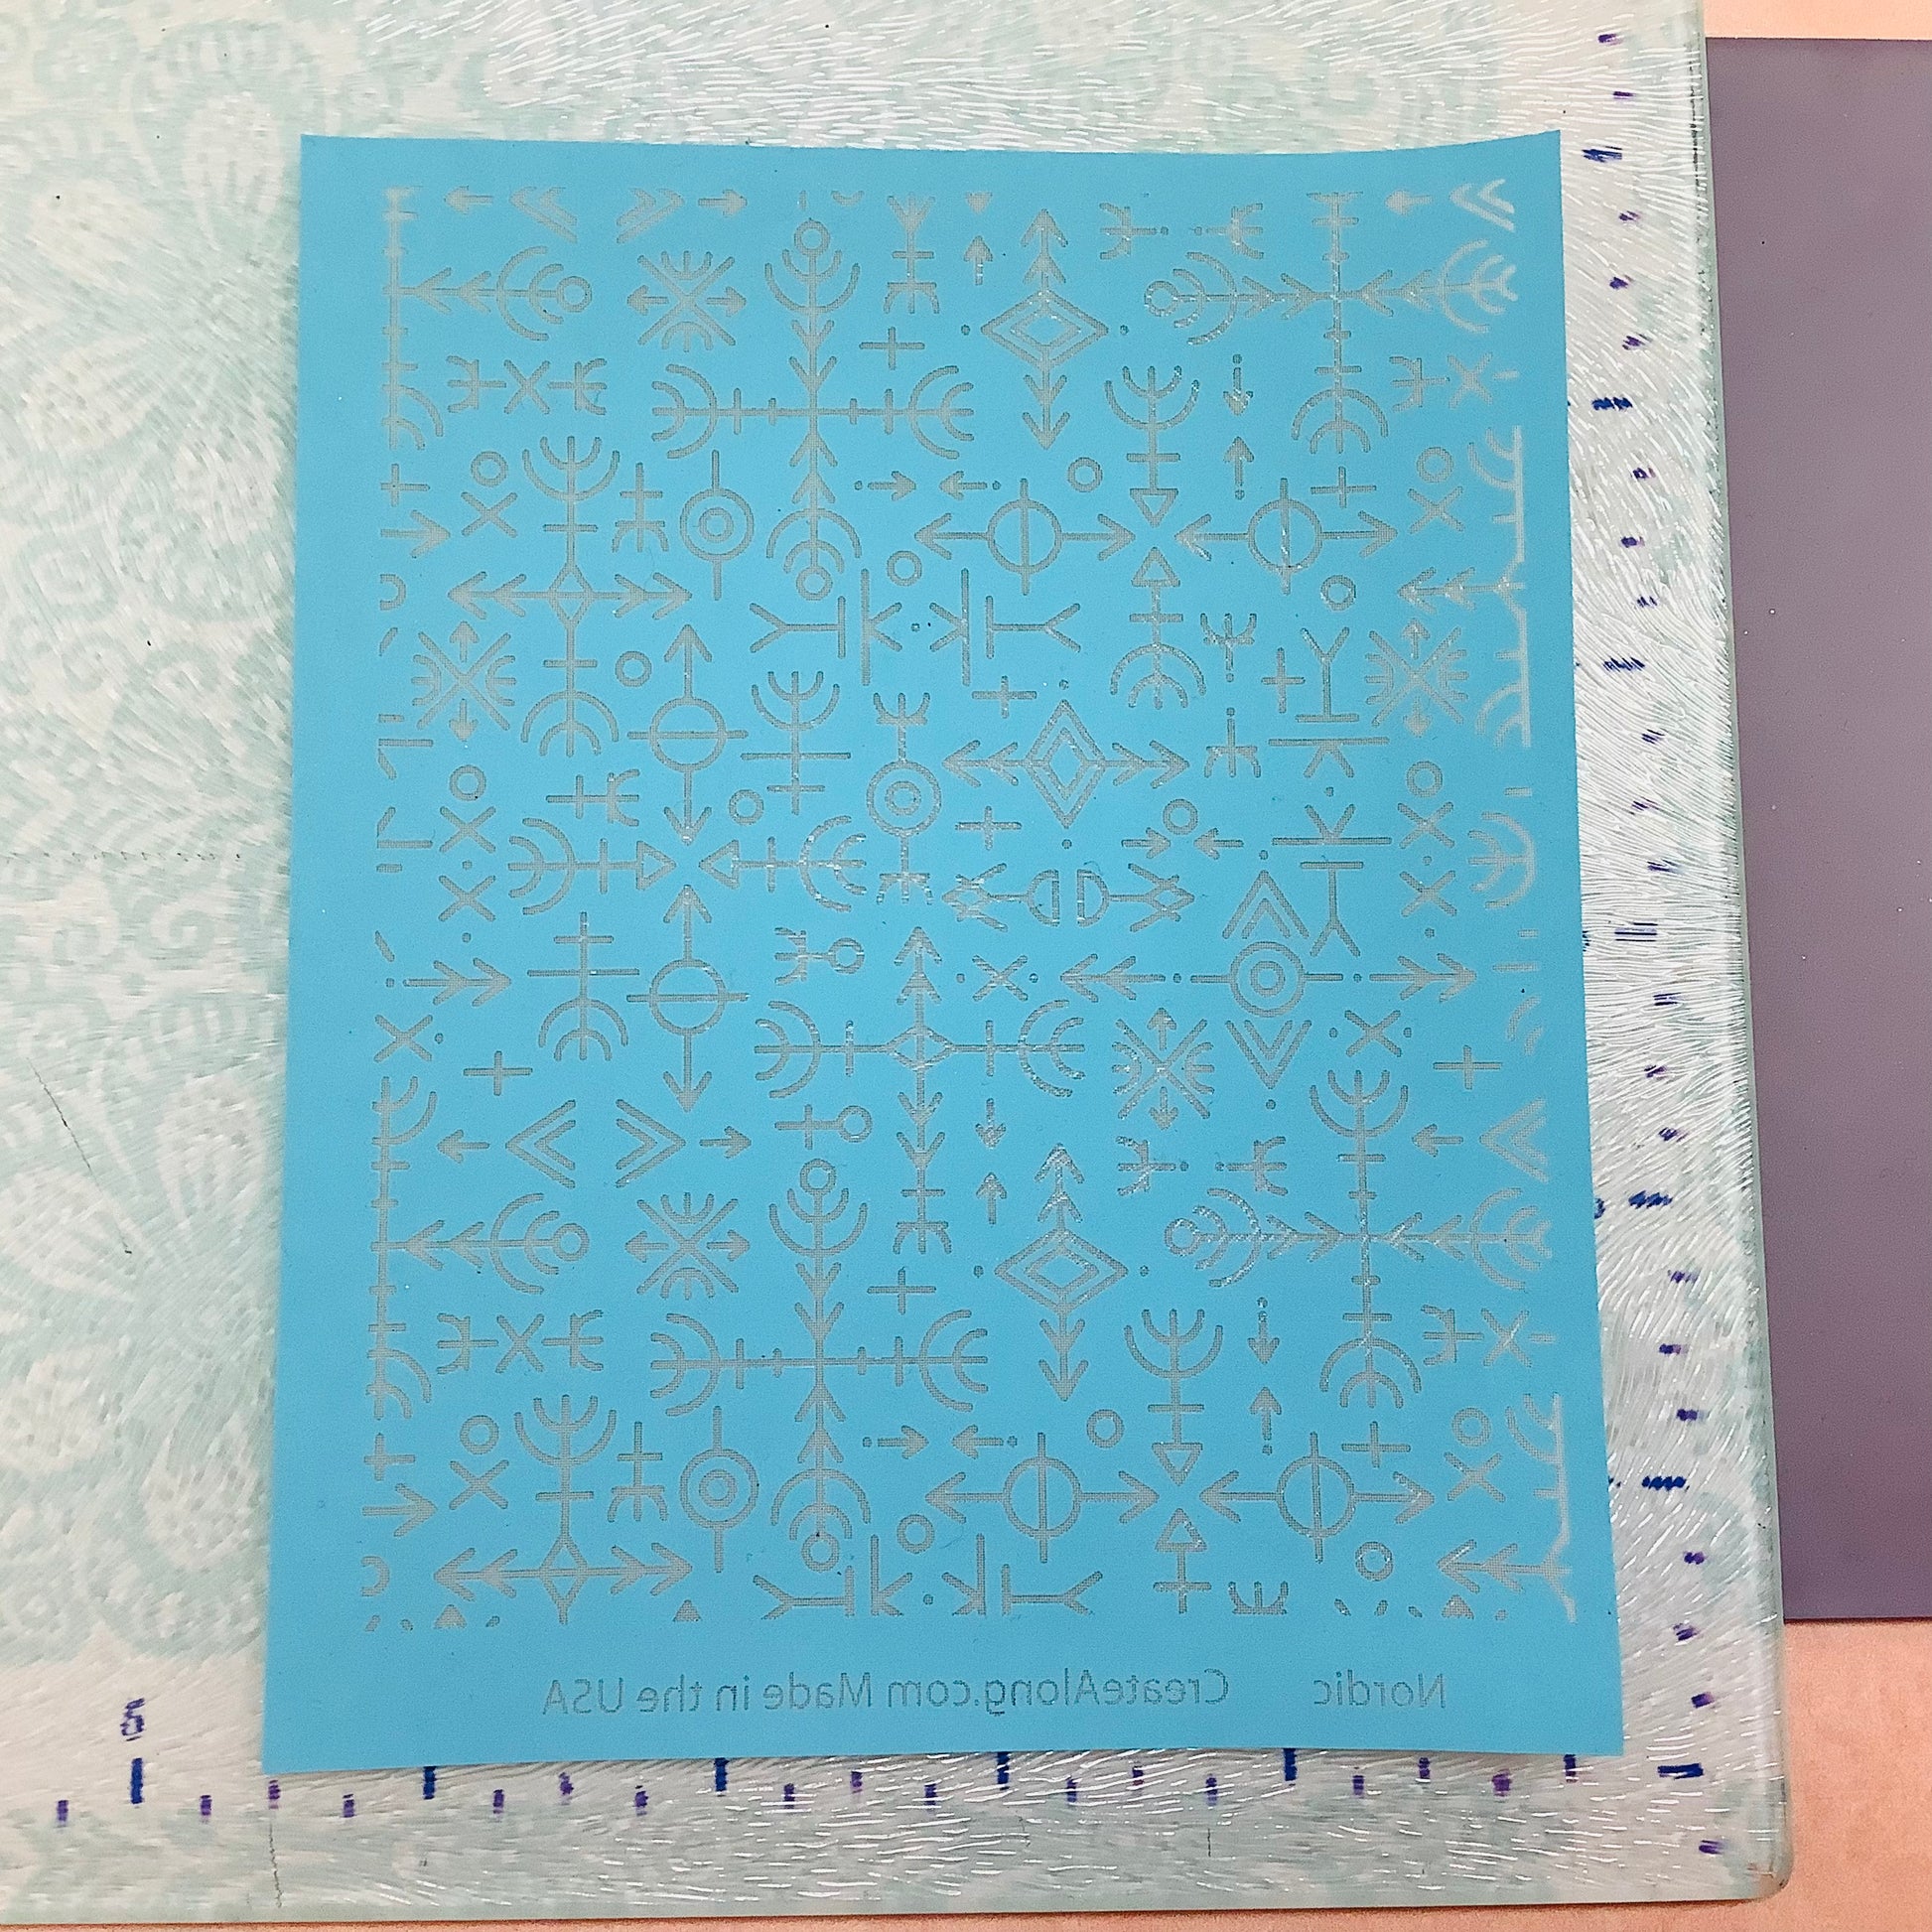 Nordic CreateAlong.com Made in the USA